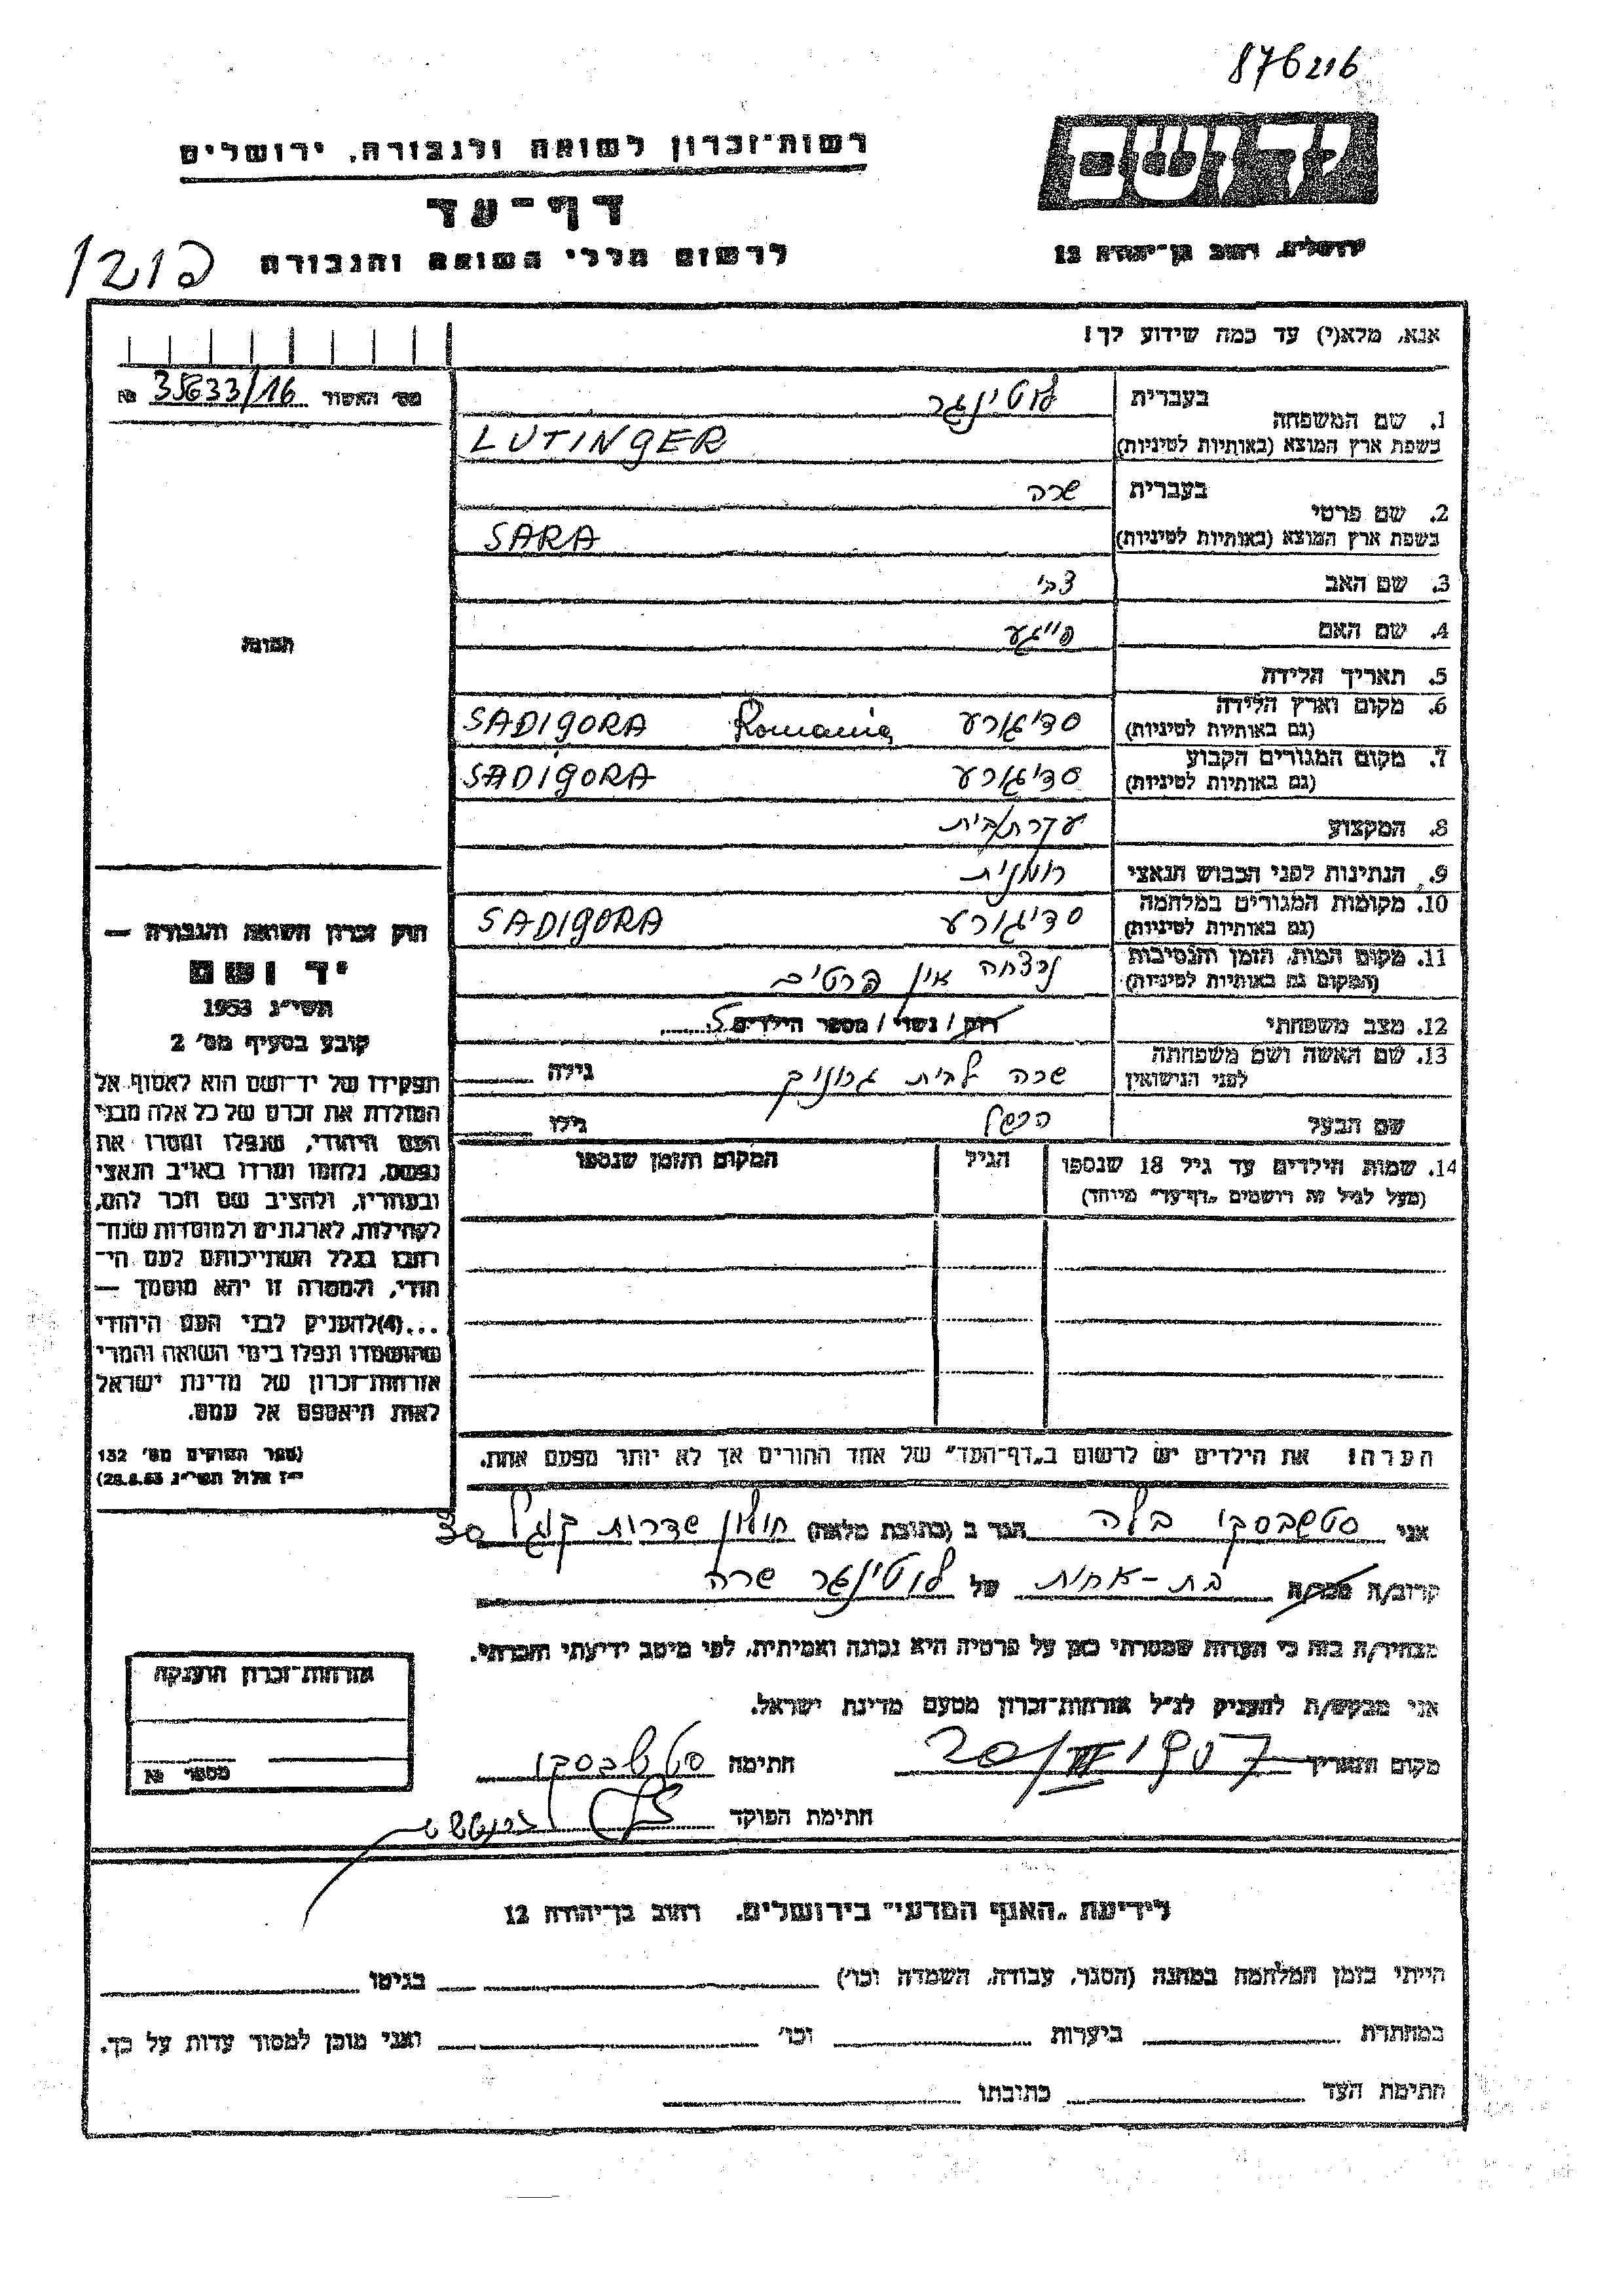 876216
רשות־זכרון לשואה ולגבורה, ירושלים
יד ושם
דף־עד
ירושלים, רחוב בן־יהודה 12
לרשום חללי השואה והגבורה
אנא, מלא(י) עד כמה שידוע לך!
מס׳ האשור № 35633/16
בעברית לוטינגר
1. שם המשפחה
בשפת ארץ המוצא (באותיות לטיניות) LUTINGER
בעברית שרה
2. שם פרטי
בשפת ארץ המוצא (באותיות לטיניות) SARA
3. שם האב צבי
4. שם האם פייגע
תמונה
5. תאריך הלידה
6. מקום וארץ הלידה סדיגורע Romania SADIGORA
(גם באותיות לטיניות)
7. מקום המגורים הקבוע סדיגורע SADIGORA
(גם באותיות לטיניות)
8. המקצוע עקרת/בית
9. הנתינות לפני הכבוש הנאצי רומנית
10. מקומות המגורים במלחמה סדיגורע SADIGORA
(גם באותיות לטיניות)
11. מקום המות, הזמן והנסיבות נרצחה אין פרטים
(המקום גם באותיות לטיניות)
12. מצב משפחתי רווק / נשוי / מספר הילדים
13. שם האשה ושם משפחתה שרה לבית גרונים גילה
לפני הנישואין
שם הבעל הרשל גילו
14. שמות הילדים עד גיל 18 שנספו הגיל המקום והזמן שנספו
(מעל לגיל זה רושמים „דף־עד״ מיוחד)
הערה: את הילדים יש לרשום ב„דף־העד״ של אחד ההורים אך לא יותר מפעם אחת.
חוק זכרון השואה והגבורה —
יד ושם
תשי״ג 1953
קובע בסעיף מס׳ 2
תפקידו של יד־ושם הוא לאסוף אל
המולדת את זכרם של כל אלה מבני
העם היהודי, שנפלו ומסרו את
נפשם, נלחמו ומרדו באויב הנאצי
ובעוזריו, ולהציב שם וזכר להם,
לקהילות, לארגונים ולמוסדות שנח־
רבו בגלל השתייכותם לעם הי־
הודי, ולמטרה זו יהא מוסמך —
...(4)להעניק לבני העם היהודי
שהושמדו ונפלו בימי השואה והמרי
אזרחות־זכרון של מדינת ישראל
לאות היאספם אל עמם.
(ספר החוקים מס׳ 132
י״ז אלול תשי״ג 28.8.53)
אני סטשבסקי בלה הגר ב (כתובת מלאה) חולון שדרות קוגל 30
קרוב/ה מכר/ה בת-אחות של לוטינגר שרה
מצהיר/ה בזה כי העדות שמסרתי כאן על פרטיה היא נכונה ואמיתית, לפי מיטב ידיעתי והכרתי.
אני מבקש/ת להעניק לנ״ל אזרחות־זכרון מטעם מדינת ישראל.
מקום ותאריך חתימה סטשבסקי
חתימת הפוקד
אזרחות־זכרון הוענקה
מספר №
לידיעת „האגף המדעי״ בירושלים. רחוב בן־יהודה 12
הייתי בזמן המלחמה במחנה (הסגר, עבודה, השמדה וכו׳) בגיטו
במחתרת ביערות וכו׳ ואני מוכן למסור עדות על כך.
חתימת העד כתובתו